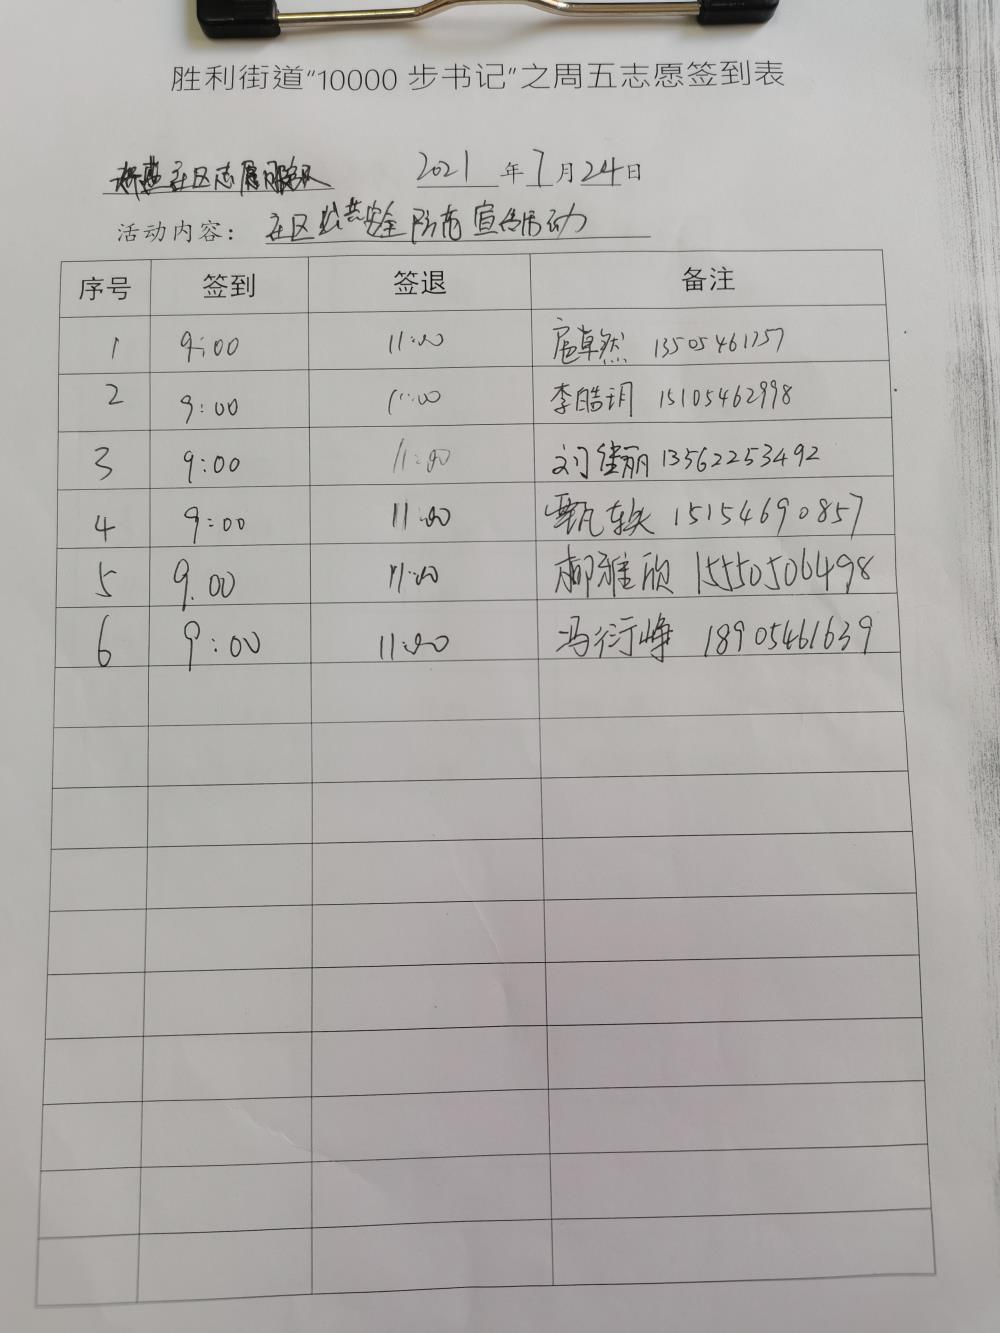 胜利街道“10000 步书记”之周五志愿签到表
社区志愿服务队 2021 年 7 月 24 日
活动内容： 社区公共安全防范宣传活动
序号 签到 签退 备注
1 9:00 11:00 扈卓然 13505461757
2 9:00 11:00 李皓玥 15105462998
3 9:00 11:00 刘佳丽 13562253492
4 9:00 11:00 甄轶 15154690857
5 9.00 11:00 郝雅欣 15550506498
6 9:00 11:00 冯衍峥 18905461639